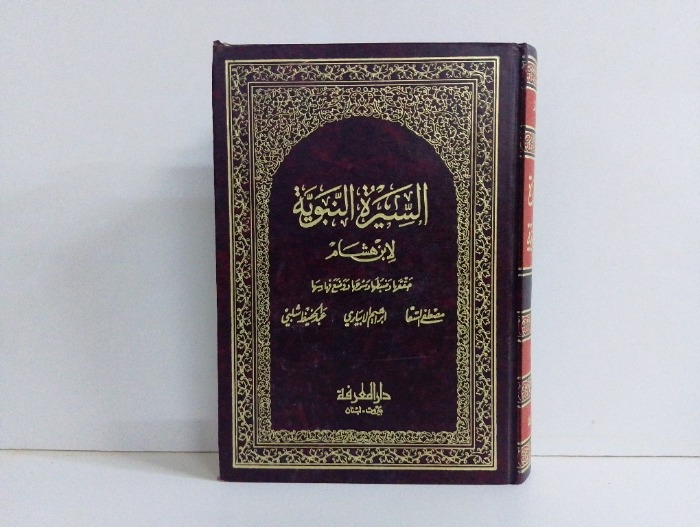 السِّيرَةُ النَّبَوِيَّة
لِابْنِ هِشَام
حَقَّقَهَا وَضَبَطَهَا وَشَرَحَهَا وَوَضَعَ فَهَارِسَهَا
مصطفى السقا ابراهيم الابياري عبد الحفيظ شلبي
دار المعرفة
بيروت - لبنان